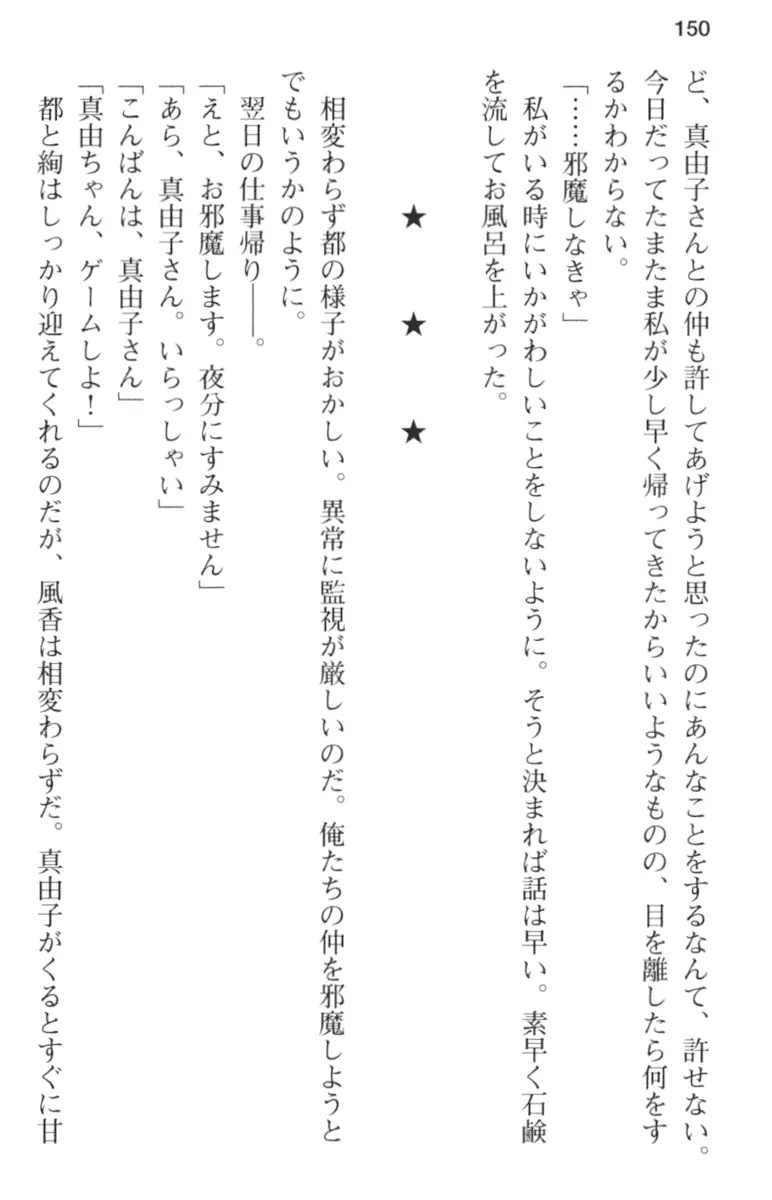 150
ど、真由子さんとの仲も許してあげようと思ったのにあんなことをするなんて、許せない。
今日だってたまたま私が少し早く帰ってきたからいいようなものの、目を離したら何をす
るかわからない。
「……邪魔しなきゃ」
私がいる時にいかがわしいことをしないように。そうと決まれば話は早い。素早く石鹸
を流してお風呂を上がった。
★　★　★
相変わらず都の様子がおかしい。異常に監視が厳しいのだ。俺たちの仲を邪魔しようと
でもいうかのように。
翌日の仕事帰り――。
「えと、お邪魔します。夜分にすみません」
「あら、真由子さん。いらっしゃい」
「こんばんは、真由子さん」
「真由ちゃん、ゲームしよ！」
都と絢はしっかり迎えてくれるのだが、風香は相変わらずだ。真由子がくるとすぐに甘